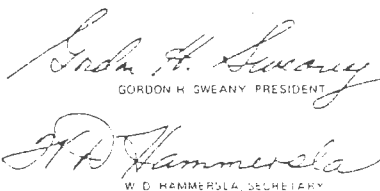 Gordon H. Sweany
GORDON H. SWEANY, PRESIDENT
W D Hammersla
W. D. HAMMERSLA, SECRETARY